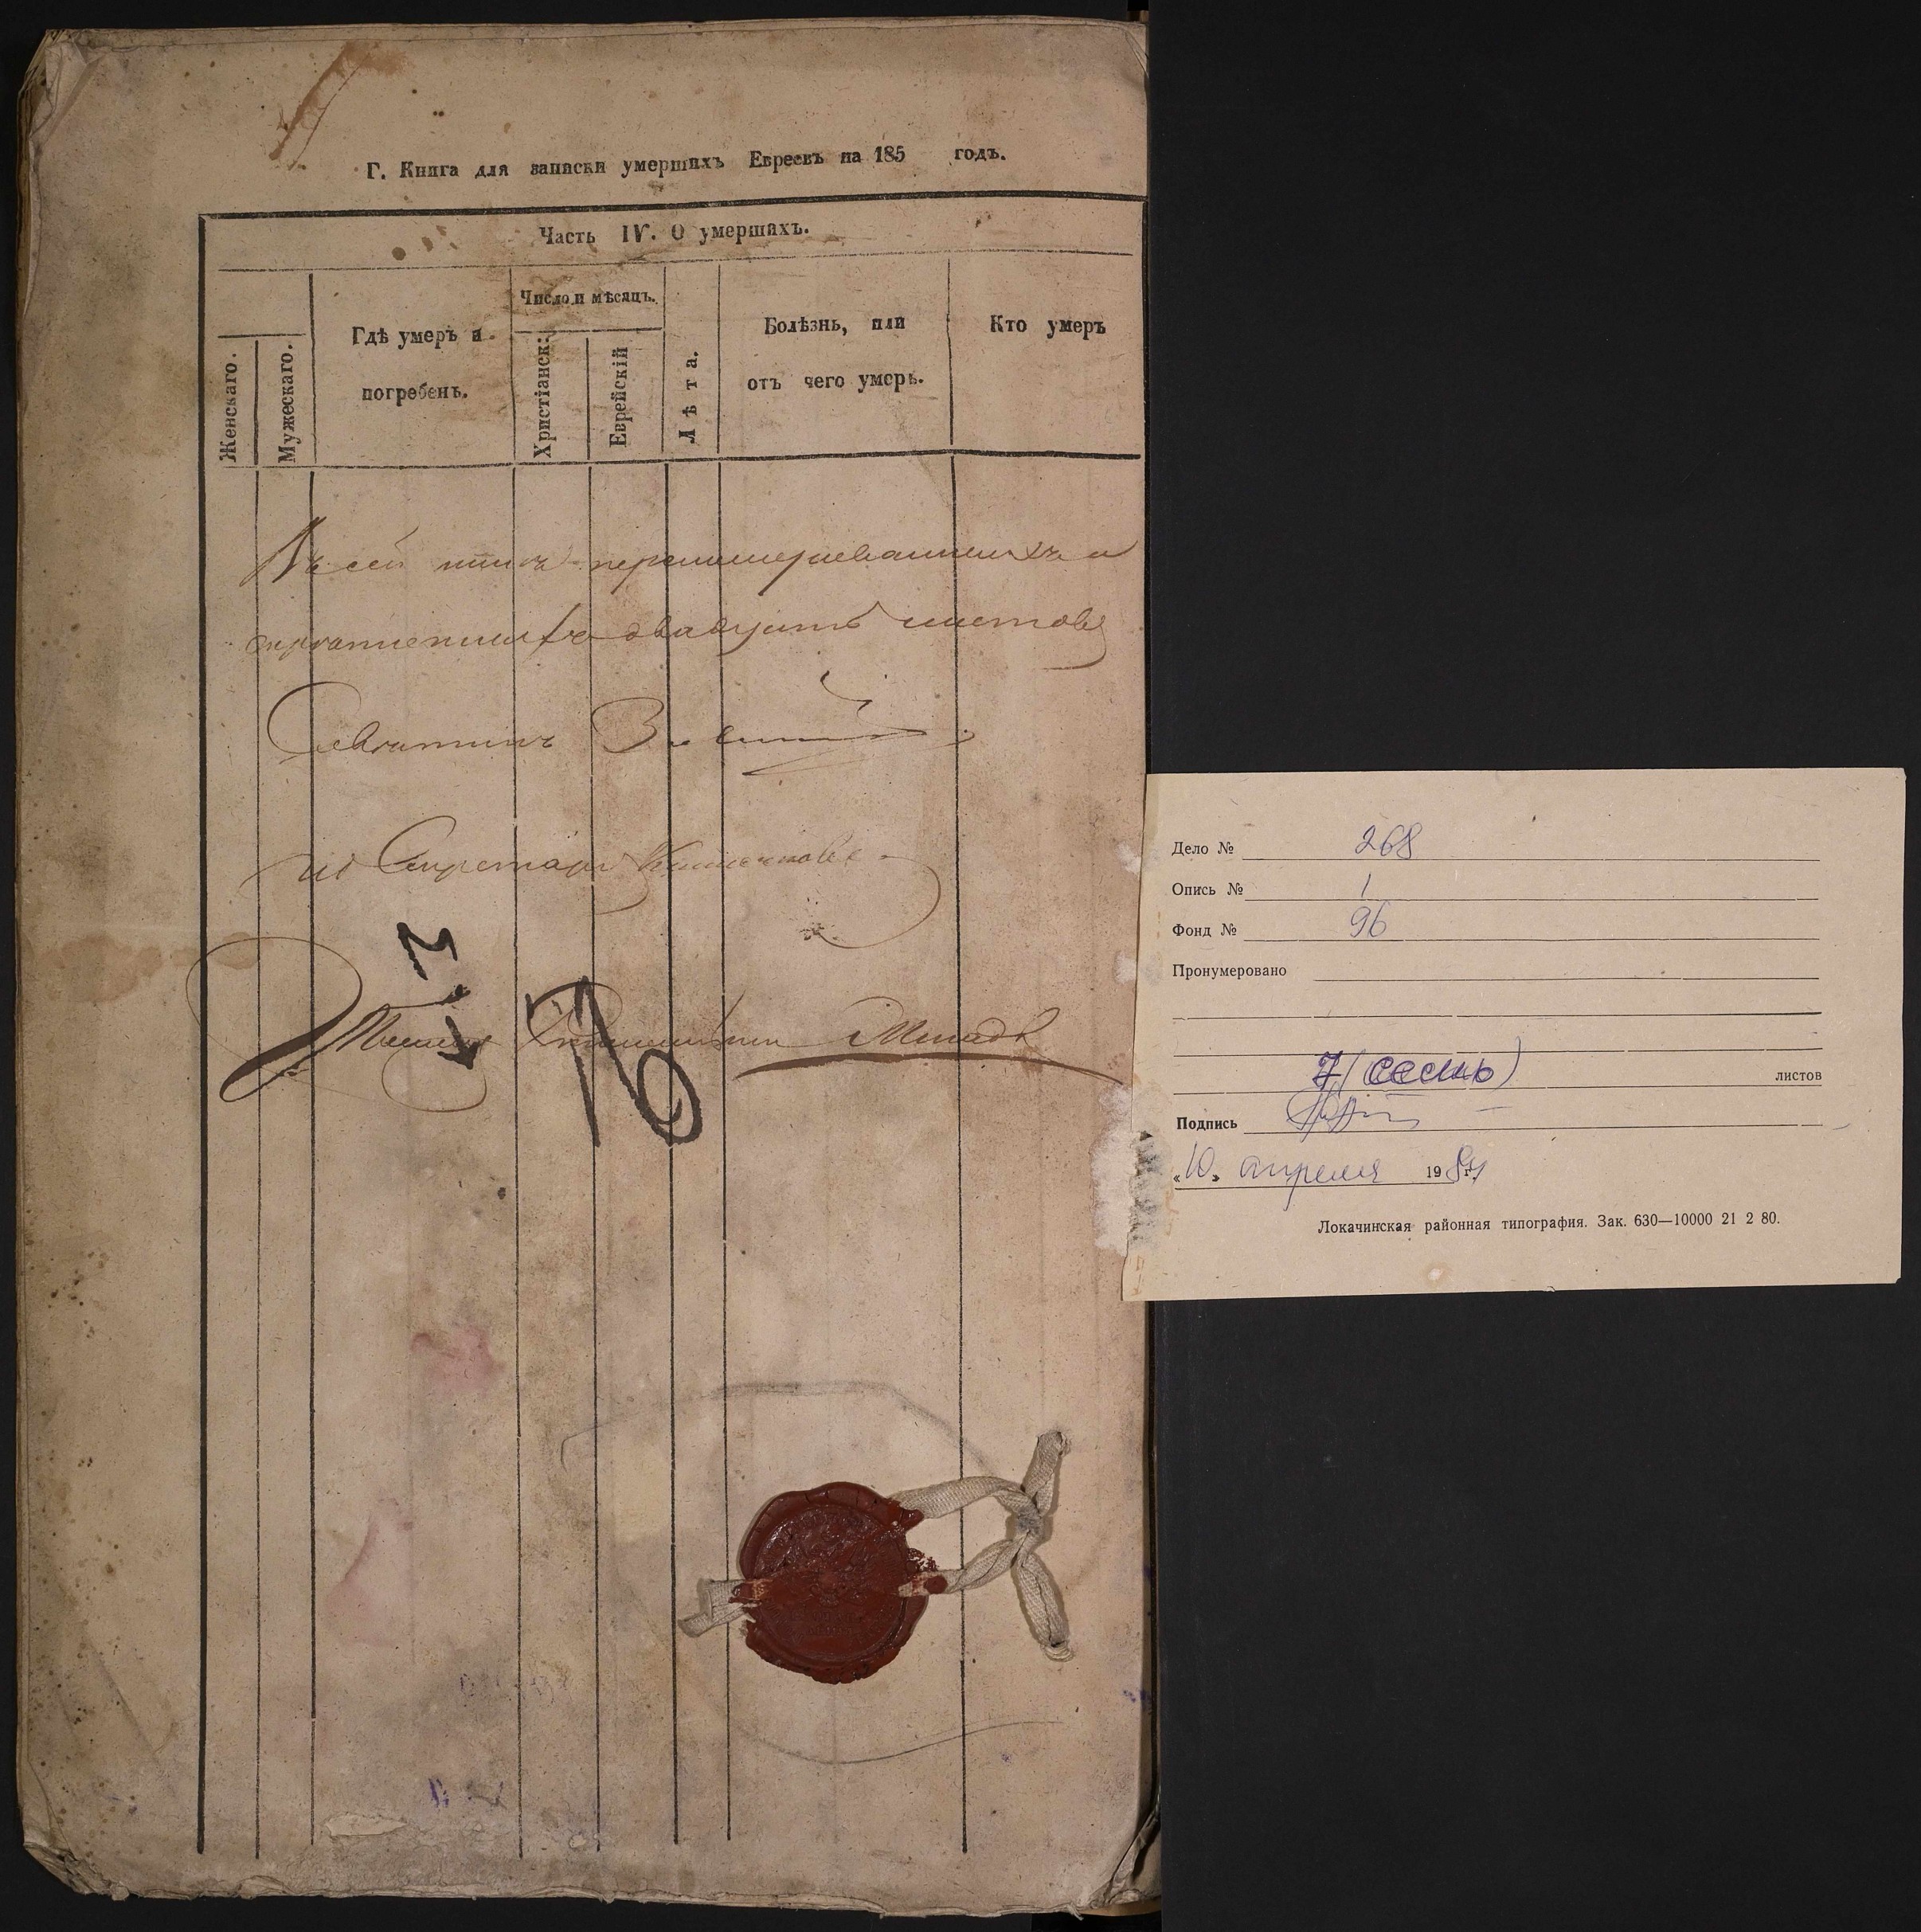 Г. Книга для записки умершихъ Евреевъ на 185 годъ.
Часть IV. О умершихъ.
Женскаго.
Мужескаго.
Гдѣ умеръ и
погребенъ.
Число и мѣсяцъ.
Христіанск:
Еврейскій
Лѣта.
Болѣзнь, или
отъ чего умеръ.
Кто умеръ
Въ сей книгѣ перенумерованныхъ и
скрѣпленныхъ двадцать листовъ
Секретарь
Дело № 268
Опись № 1
Фонд № 96
Пронумеровано
7 (семь)
листов
Подпись
«10» апреля 1984 г.
Локачинская районная типография. Зак. 630—10000 21 2 80.